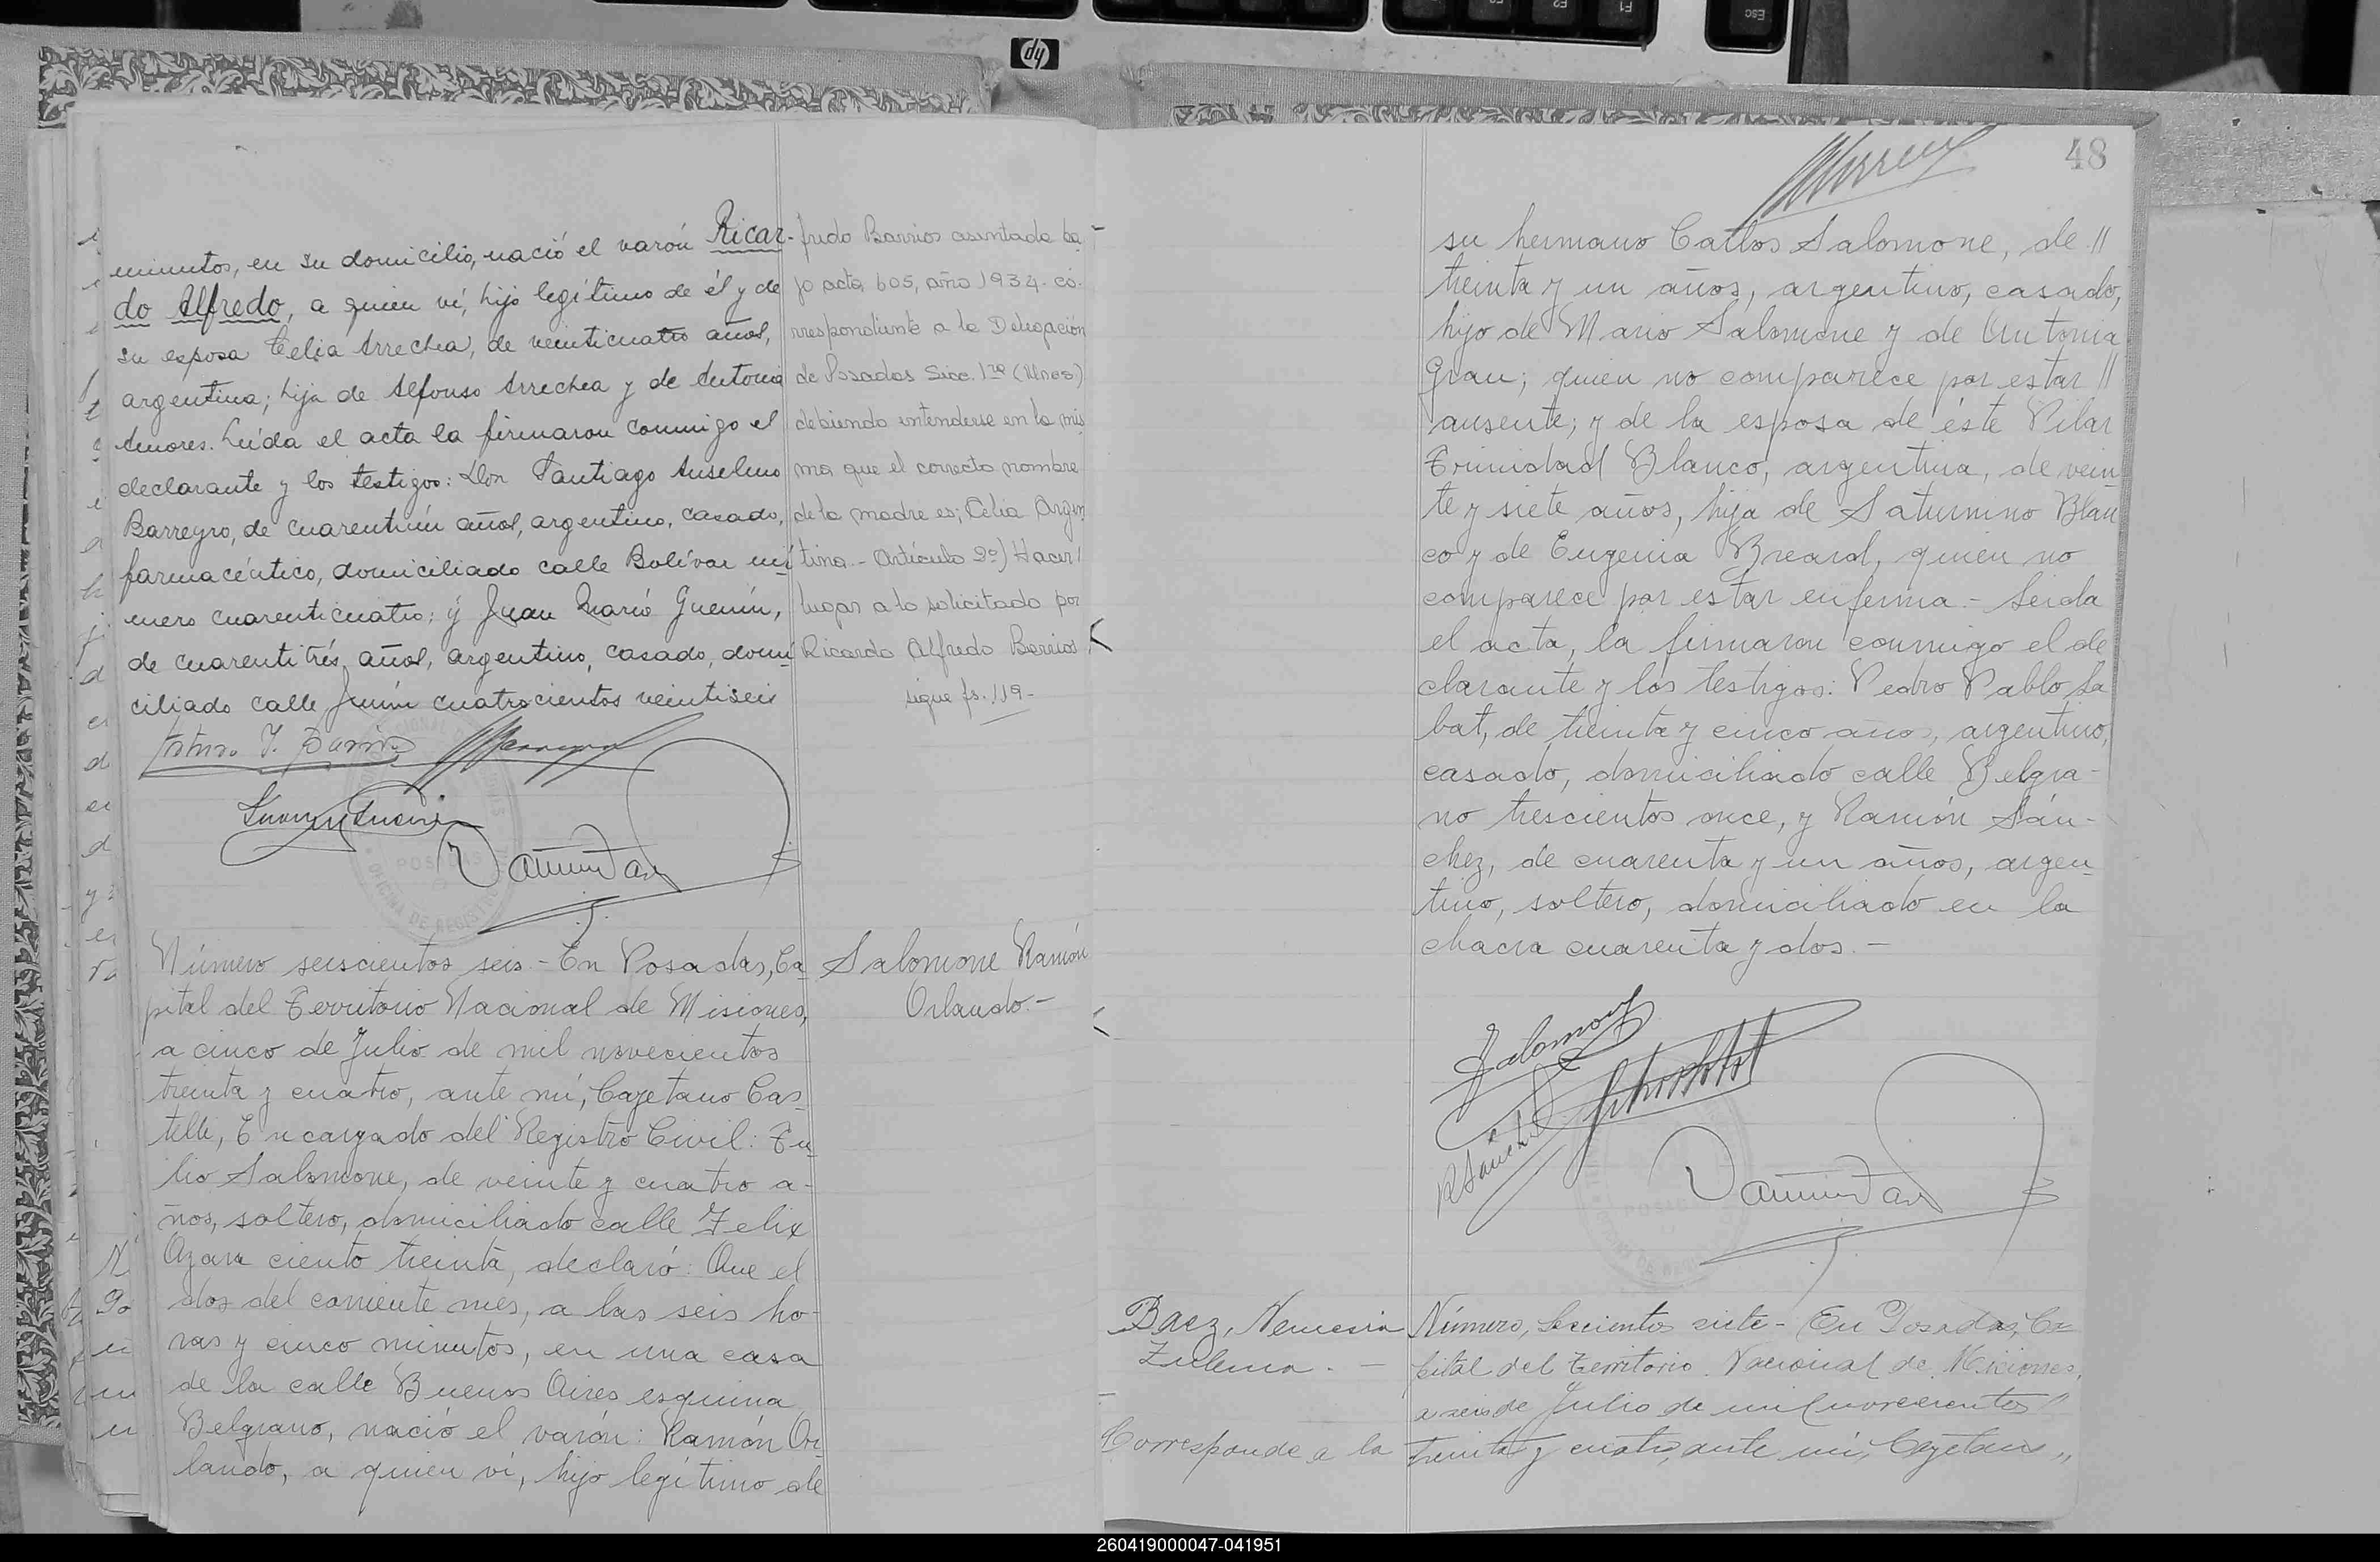 minutos, en su domicilio, nació el varón Ricar-
do Alfredo, a quien ví, hijo legítimo de él y de
su esposa Celia Arrechea, de veinticuatro años,
argentina; hija de Alfonso Arrechea y de Antonia
. Leída el acta la firmaron conmigo el
declarante y los testigos: Don Santiago Anselmo
Barreyro, de cuarentiún años, argentino, casado,
farmacéutico, domiciliado calle Bolívar nú
mero cuarenticuatro; y Juan Mario Guenin,
de cuarentitrés años, argentino, casado, domi
ciliado calle Junín cuatrocientos veintiseis
fredo Barrios asentada ba
jo acta 605, año 1934. co-
rrespondiente a la Delegación
de Posadas Secc. 1ra
debiendo entenderse en la mis
ma que el correcto nombre
de la madre es; Celia Argen
tina - Artículo 2º) Hacer
lugar a lo solicitado por
Ricardo Alfredo Barrios
sigue fs. 119-
POSADAS
OFICINA DE REGISTRO
Número seiscientos seis - En Posadas, Ca
pital del Territorio Nacional de Misiones,
a cinco de Julio de mil novecientos
treinta y cuatro, ante mí, Cayetano Cas
telli, Encargado del Registro Civil: Tu
lio Salomone, de veinte y cuatro a-
ños, soltero, domiciliado calle Felix
Azara ciento treinta, declaró: Que el
dos del corriente mes, a las seis ho-
ras y cinco minutos, en una casa
de la calle Buenos Aires esquina
Belgrano, nació el varón: Ramón Or
lando, a quien ví, hijo legítimo de
Salomone Ramón
Orlando.-
48
su hermano Carlos Salomone, de //
treinta y un años, argentino, casado,
hijo de Mario Salomone y de Antonia
Grau; quien no comparece por estar //
ausente; y de la esposa de éste Pilar
Trinidad Blanco, argentina, de vein
te y siete años, hija de Saturnino Blan
co y de Eugenia Breard, quien no
comparece por estar enferma.- Leida
el acta, la firmaron conmigo el de
clarante y los testigos: Pedro Pablo La
bat, de treinta y cinco años, argentino,
casado, domiciliado calle Belgra-
no trescientos once, y Ramón Sán-
chez, de cuarenta y un años, argen
tino, soltero, domiciliado en la
chacra cuarenta y dos.-
Salomone
R Sanchez
POSADAS
Baez, Nemesia
Zulema.-
Corresponde a la
Número, seiscientos siete - En Posadas, Ca
pital del Territorio Nacional de Misiones,
a seis de Julio de mil novecientos //
treinta y cuatro, ante mí, Cayetano //
hp
Esc
F1
F2
F3
260419000047-041951